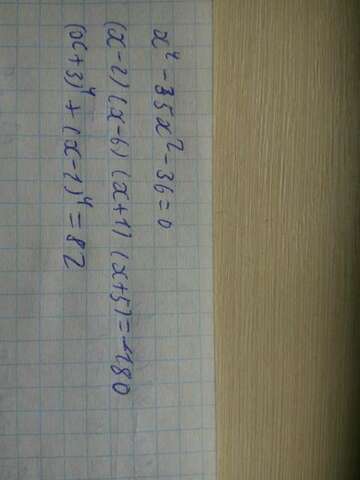 x⁴ - 35x² - 36 = 0
(x - 2)(x - 6)(x + 1)(x + 5) = -180
(x + 3)⁴ + (x - 1)⁴ = 82